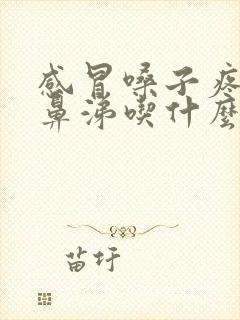 感冒嗓子疼
鼻涕喫什麼
苗圩